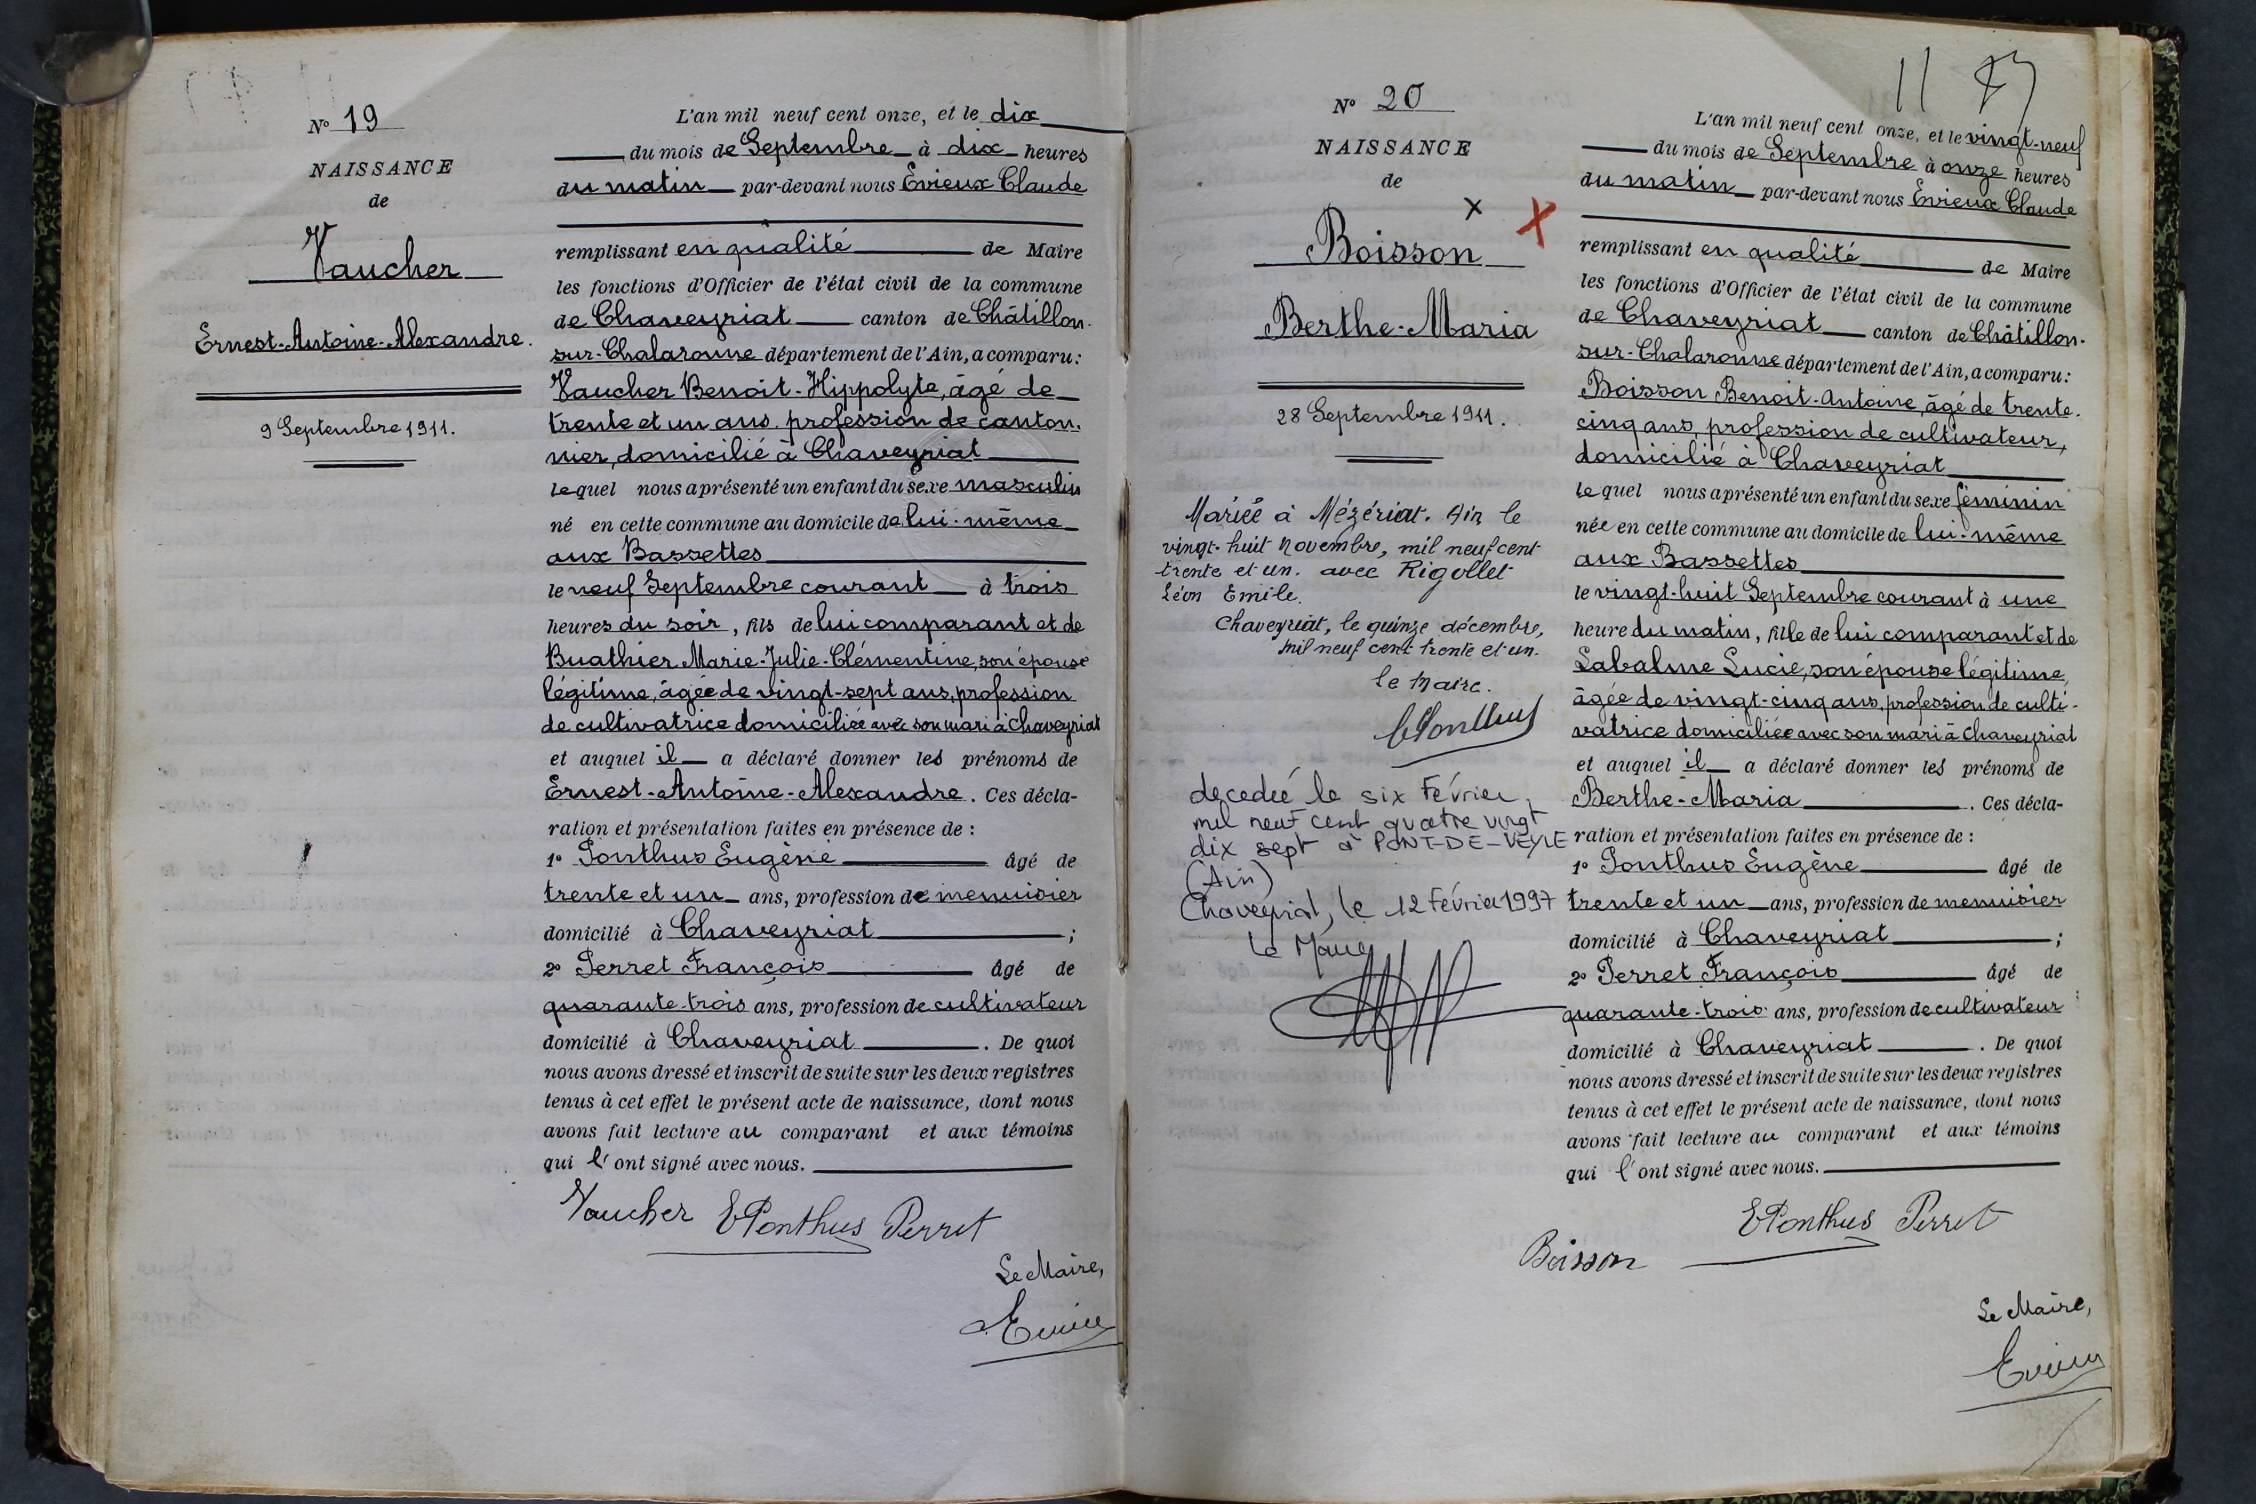 N° 19
NAISSANCE
de
Vaucher
Ernest-Antoine-Alexandre.
9 Septembre 1911.
L'an mil neuf cent onze, et le dix
du mois de Septembre à dix heures
du matin par-devant nous Evieux Claude
remplissant en qualité de Maire
les fonctions d'Officier de l'état civil de la commune
de Chaveyriat canton de Châtillon-
sur-Chalaronne département de l'Ain, a comparu:
Vaucher Benoit-Hippolyte, âgé de
trente et un ans, profession de canton-
nier, domicilié à Chaveyriat
lequel nous a présenté un enfant du sexe masculin
né en cette commune au domicile de lui-même
aux Bassettes
le neuf Septembre courant à trois
heures du soir, fils de lui comparant et de
Buathier Marie-Julie-Clémentine, son épouse
légitime, âgée de vingt-sept ans, profession
de cultivatrice domiciliée avec son mari à Chaveyriat
et auquel il a déclaré donner les prénoms de
Ernest-Antoine-Alexandre. Ces décla-
ration et présentation faites en présence de :
1° Ponthus Eugène âgé de
trente et un ans, profession de menuisier
domicilié à Chaveyriat ;
2° Perret François âgé de
quarante-trois ans, profession de cultivateur
domicilié à Chaveyriat. De quoi
nous avons dressé et inscrit de suite sur les deux registres
tenus à cet effet le présent acte de naissance, dont nous
avons fait lecture au comparant et aux témoins
qui l'ont signé avec nous.
Vaucher EPonthus Perret
Le Maire,
Evieux
11
N° 20
NAISSANCE
de
x X
Boisson
Berthe-Maria
28 Septembre 1911.
Mariée à Mézériat. Ain le
vingt-huit novembre, mil neuf cent
trente et un. avec Rigollet
Léon Emile.
Chaveyriat, le quinze décembre,
mil neuf cent trente et un.
le Maire.
EPonthus
decedée le six Février
mil neuf cent quatre vingt
dix sept à PONT-DE-VEYLE
(Ain)
Chaveyriat, le 12 Février 1997
Le Maire
L'an mil neuf cent onze, et le vingt-neuf
du mois de Septembre à onze heures
du matin par-devant nous Evieux Claude
remplissant en qualité de Maire
les fonctions d'Officier de l'état civil de la commune
de Chaveyriat canton de Châtillon-
sur-Chalaronne département de l'Ain, a comparu:
Boisson Benoit-Antoine, âgé de trente-
cinq ans, profession de cultivateur,
domicilié à Chaveyriat
lequel nous a présenté un enfant du sexe féminin
née en cette commune au domicile de lui-même
aux Bassettes
le vingt-huit Septembre courant à une
heure du matin, fille de lui comparant et de
Labalme Lucie, son épouse légitime,
âgée de vingt-cinq ans, profession de culti-
vatrice domiciliée avec son mari à Chaveyriat
et auquel il a déclaré donner les prénoms de
Berthe-Maria. Ces décla-
ration et présentation faites en présence de :
1° Ponthus Eugène âgé de
trente et un ans, profession de menuisier
domicilié à Chaveyriat ;
2° Perret François âgé de
quarante-trois ans, profession de cultivateur
domicilié à Chaveyriat. De quoi
nous avons dressé et inscrit de suite sur les deux registres
tenus à cet effet le présent acte de naissance, dont nous
avons fait lecture au comparant et aux témoins
qui l'ont signé avec nous.
EPonthus Perret
Boisson
Le Maire,
Evieux